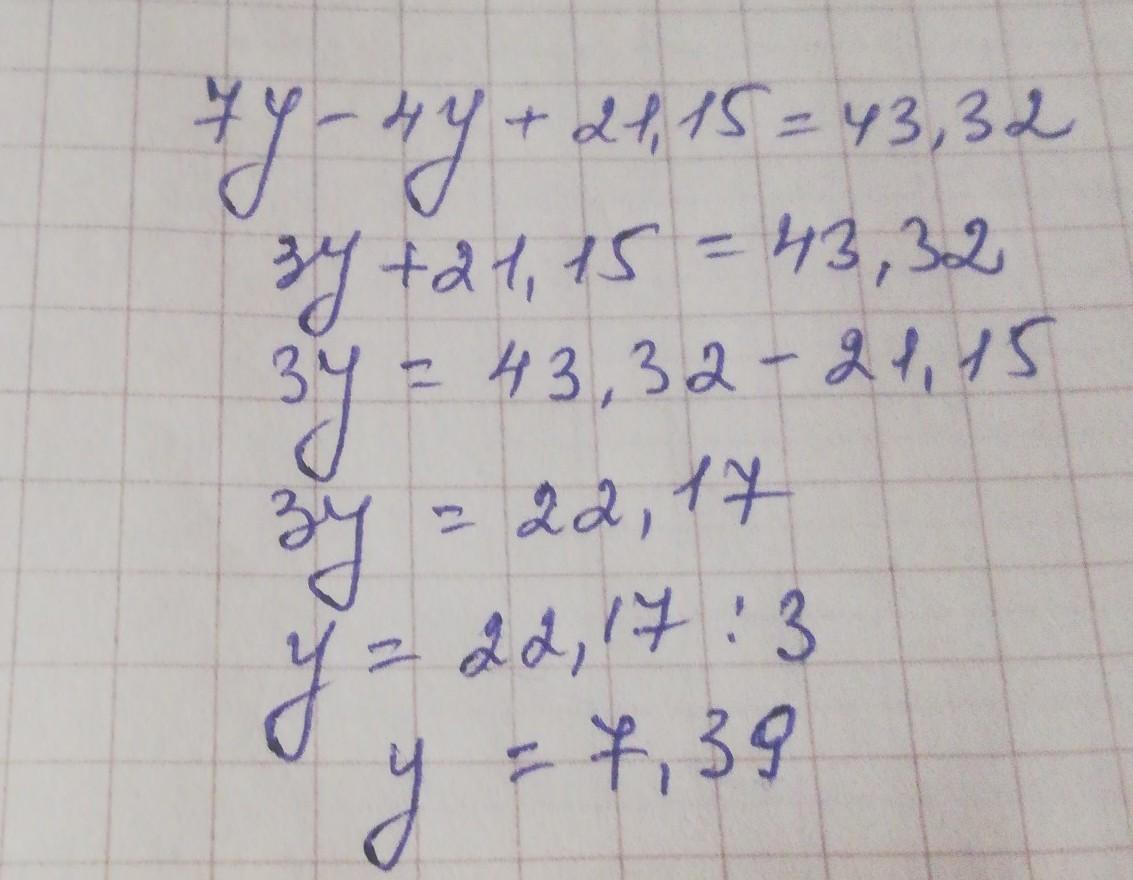 7y - 4y + 21,15 = 43,32
3y + 21,15 = 43,32
3y = 43,32 - 21,15
3y = 22,17
y = 22,17 : 3
y = 7,39